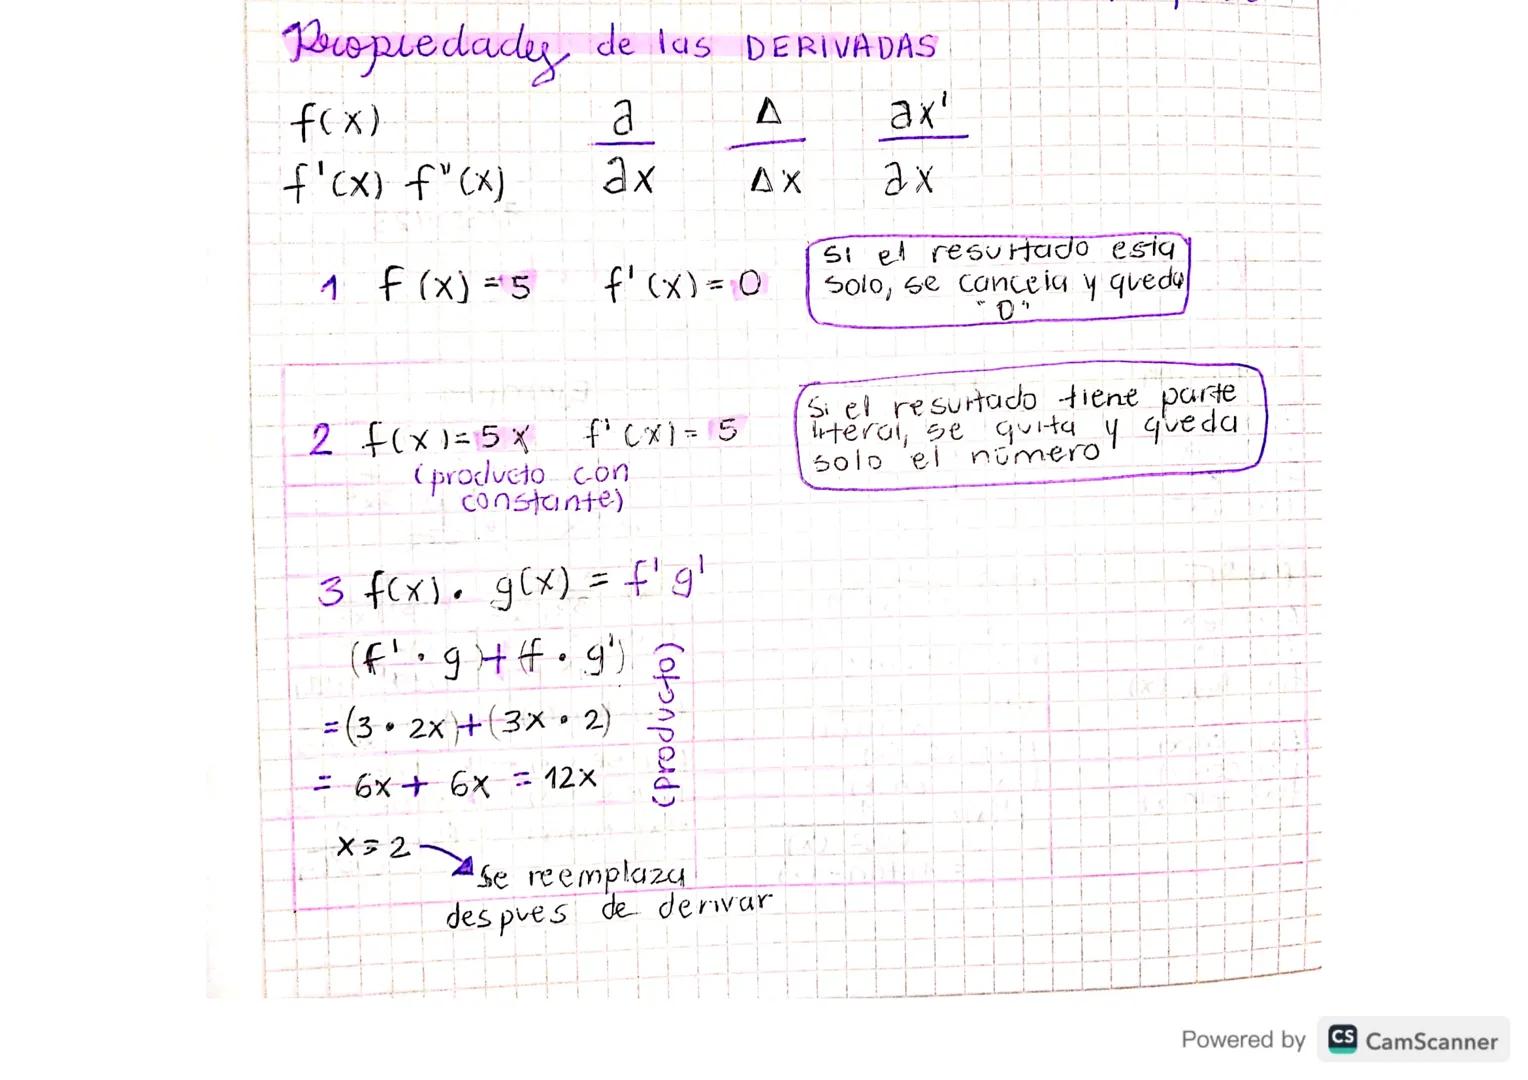 Propiedades de las DERIVADAS
f(x) ∂ Δ ∂x'
f'(x) f"(x) ∂x Δx ∂x
1 f(x) = 5 f'(x) = 0
Si el resultado esta
solo, se cancela y queda
"0"
2 f(x) = 5x f'(x) = 5
(producto con
constante)
Si el resultado tiene parte
literal, se quita y queda
solo el número
3 f(x) · g(x) = f' g'
(f' · g) + (f · g')
= (3 · 2x) + (3x · 2)
= 6x + 6x = 12x
(producto)
x = 2
Se reemplaza
despues de derivar
Powered by CS CamScanner